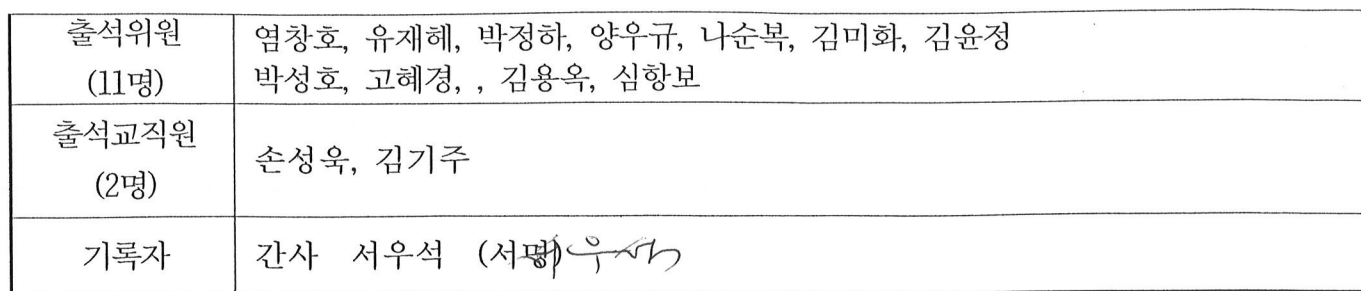 출석위원
(11명)
염창호, 유재혜, 박정하, 양우규, 나순복, 김미화, 김윤정
박성호, 고혜경, , 김용옥, 심항보
출석교직원
(2명)
손성욱, 김기주
기록자
간사 서우석 (서명)